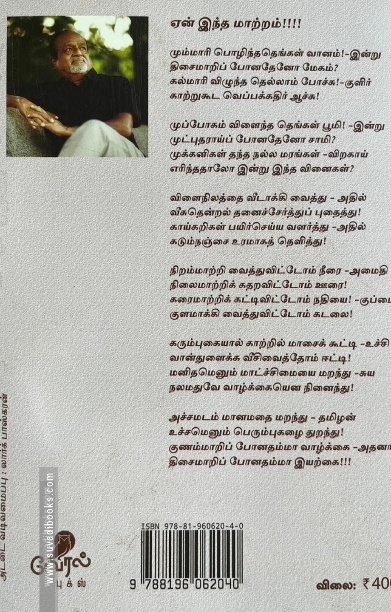 ஏன் இந்த மாற்றம்!!!!
மும்மாரி பொழிந்ததெங்கள் வானம்!-இன்று
திசைமாறிப் போனதேனோ மேகம்?
கல்மாரி விழுந்த தெல்லாம் போச்சு!-குளிர்
காற்றுகூட வெப்பக்கதிர் ஆச்சு!
முப்போகம் விளைந்த தெங்கள் பூமி! -இன்று
முட்புதராய்ப் போனதேனோ சாமி?
முக்கனிகள் தந்த நல்ல மரங்கள் -விறகாய்
எரிந்ததாலோ இன்று இந்த வினைகள்?
விளைநிலத்தை வீடாக்கி வைத்து - அதில்
வீசுதென்றல் தனைச்சேர்த்துப் புதைத்து!
காய்கறிகள் பயிர்செய்ய வளர்த்து -அதில்
கடும்நஞ்சை உரமாகத் தெளித்து!
நிறம்மாற்றி வைத்துவிட்டோம் நீரை -அமைதி
நிலைமாற்றிக் கதறவிட்டோம் ஊரை!
கரைமாற்றிக் கட்டிவிட்டோம் நதியை! -குப்பை
குளமாக்கி வைத்துவிட்டோம் கடலை!
கரும்புகையால் காற்றில் மாசைக் கூட்டி -உச்சி
வான்துளைக்க வீசிவைத்தோம் ஈட்டி!
மனிதமெனும் மாட்ச்சிமையை மறந்து -சுய
நலமதுவே வாழ்க்கையென நினைந்து!
அச்சமடம் மானமதை மறந்து - தமிழன்
உச்சமெனும் பெரும்புகழை துறந்து!
குணம்மாறிப் போனதம்மா வாழ்க்கை -அதனா
திசைமாறிப் போனதம்மா இயற்கை!!!
அட்டை வடிவமைப்பு : லார்க் பாஸ்கரன்
www.suvadibooks.com
புக்ஸ்
ISBN 978-81-960620-4-0
9 788196 062040
விலை: ₹ 400